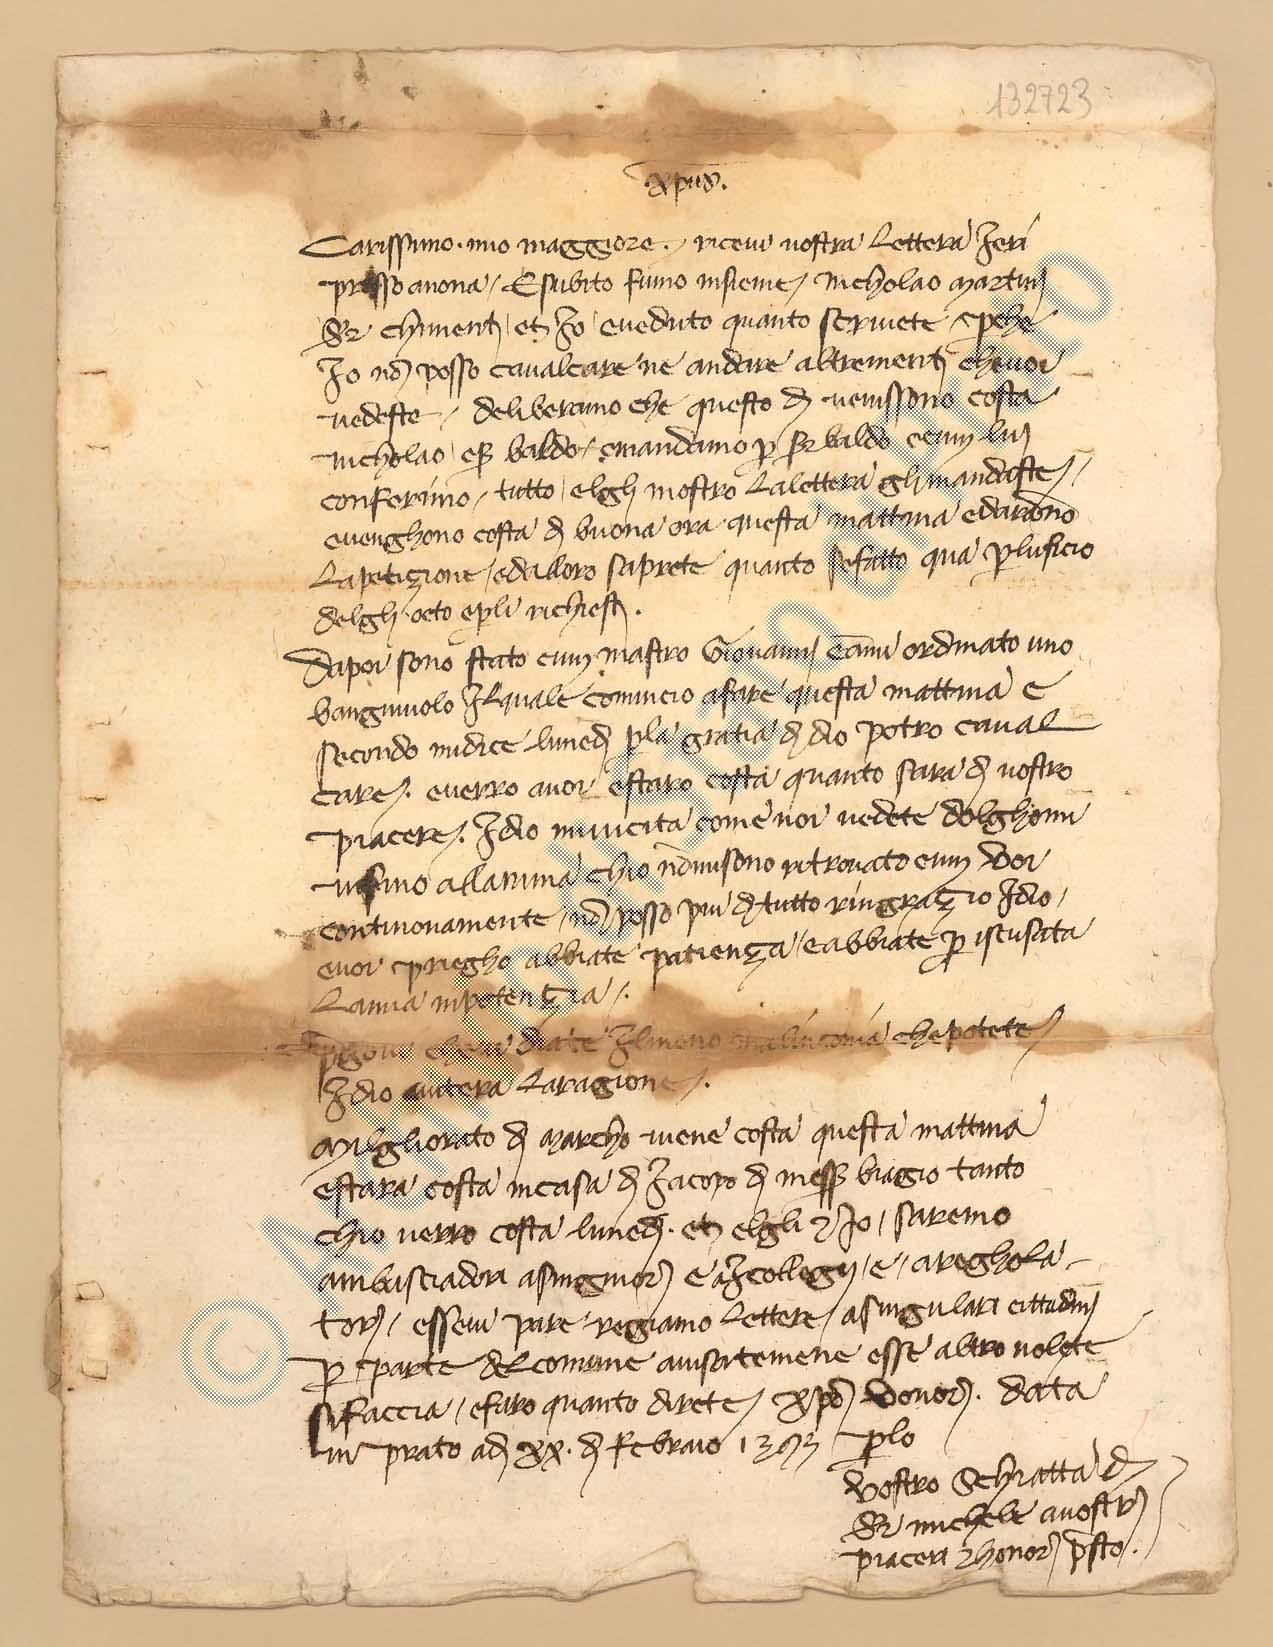 132723
.xpus.
Carissimo . mio maggiore . ricevi vostra lettera Jeri
presso anona / Esubito fumo insieme / nicholao martini
Ser chimenti et Jo / eveduto quanto scrivete epche
Jo non posso cavalcare ne andare altrementi chevoi
vedeste / deliberamo che questo di venissono costa
nicholao eser baldo / emandamo p ser baldo ecum lui
conferimo / tutto / elgli mostro Lalettera glimandaste /
evenghono costa di buona ora questa mattina edaranno
Lapetizione / edalloro saprete quanto sefatto qua pluficio
delgli octo epli richiesti .
Dapoi sono stato cum mastro Giovanni eami ordinato uno
bangniuolo Jlquale comincio afare questa mattina e
secondo midice lunedi pla gratia di dio potro caval
care . everro avoi estaro costa quanto sara di vostro
piacere . Jdio mivicita come voi vedete dolghomi
insino allanima chio nonmisono ritrovato cum Voi
continovamente / non posso piu di tutto ringrazio Jdio /
evoi priegho abbiate patienza / eabbiate p iscusata
Lamia inpotenzia / .
pigovi chevi diate Jlmeno malinconia chepotete
Jdio autera Laragione .
Milgliorato di Marcho viene costa questa mattina
estara costa incasa di Jacopo di messer biagio tanto
chio verro costa lunedi . et elgli 2 Jo / saremo
ambasciadori asingniori E aJcollegi / e / areghola
tori / essevi pare regiamo lettere / asingulari cittadini
p parte del comune avisatemene esse altro volete
sifaccia / efaro quanto direte / xpo Vonori . data
in prato adi xx . di Febraio 1393 plo
Vostro Schiatta di
Ser michele avostri
piaceri 2honori psto .
© Archivio di Stato di Prato